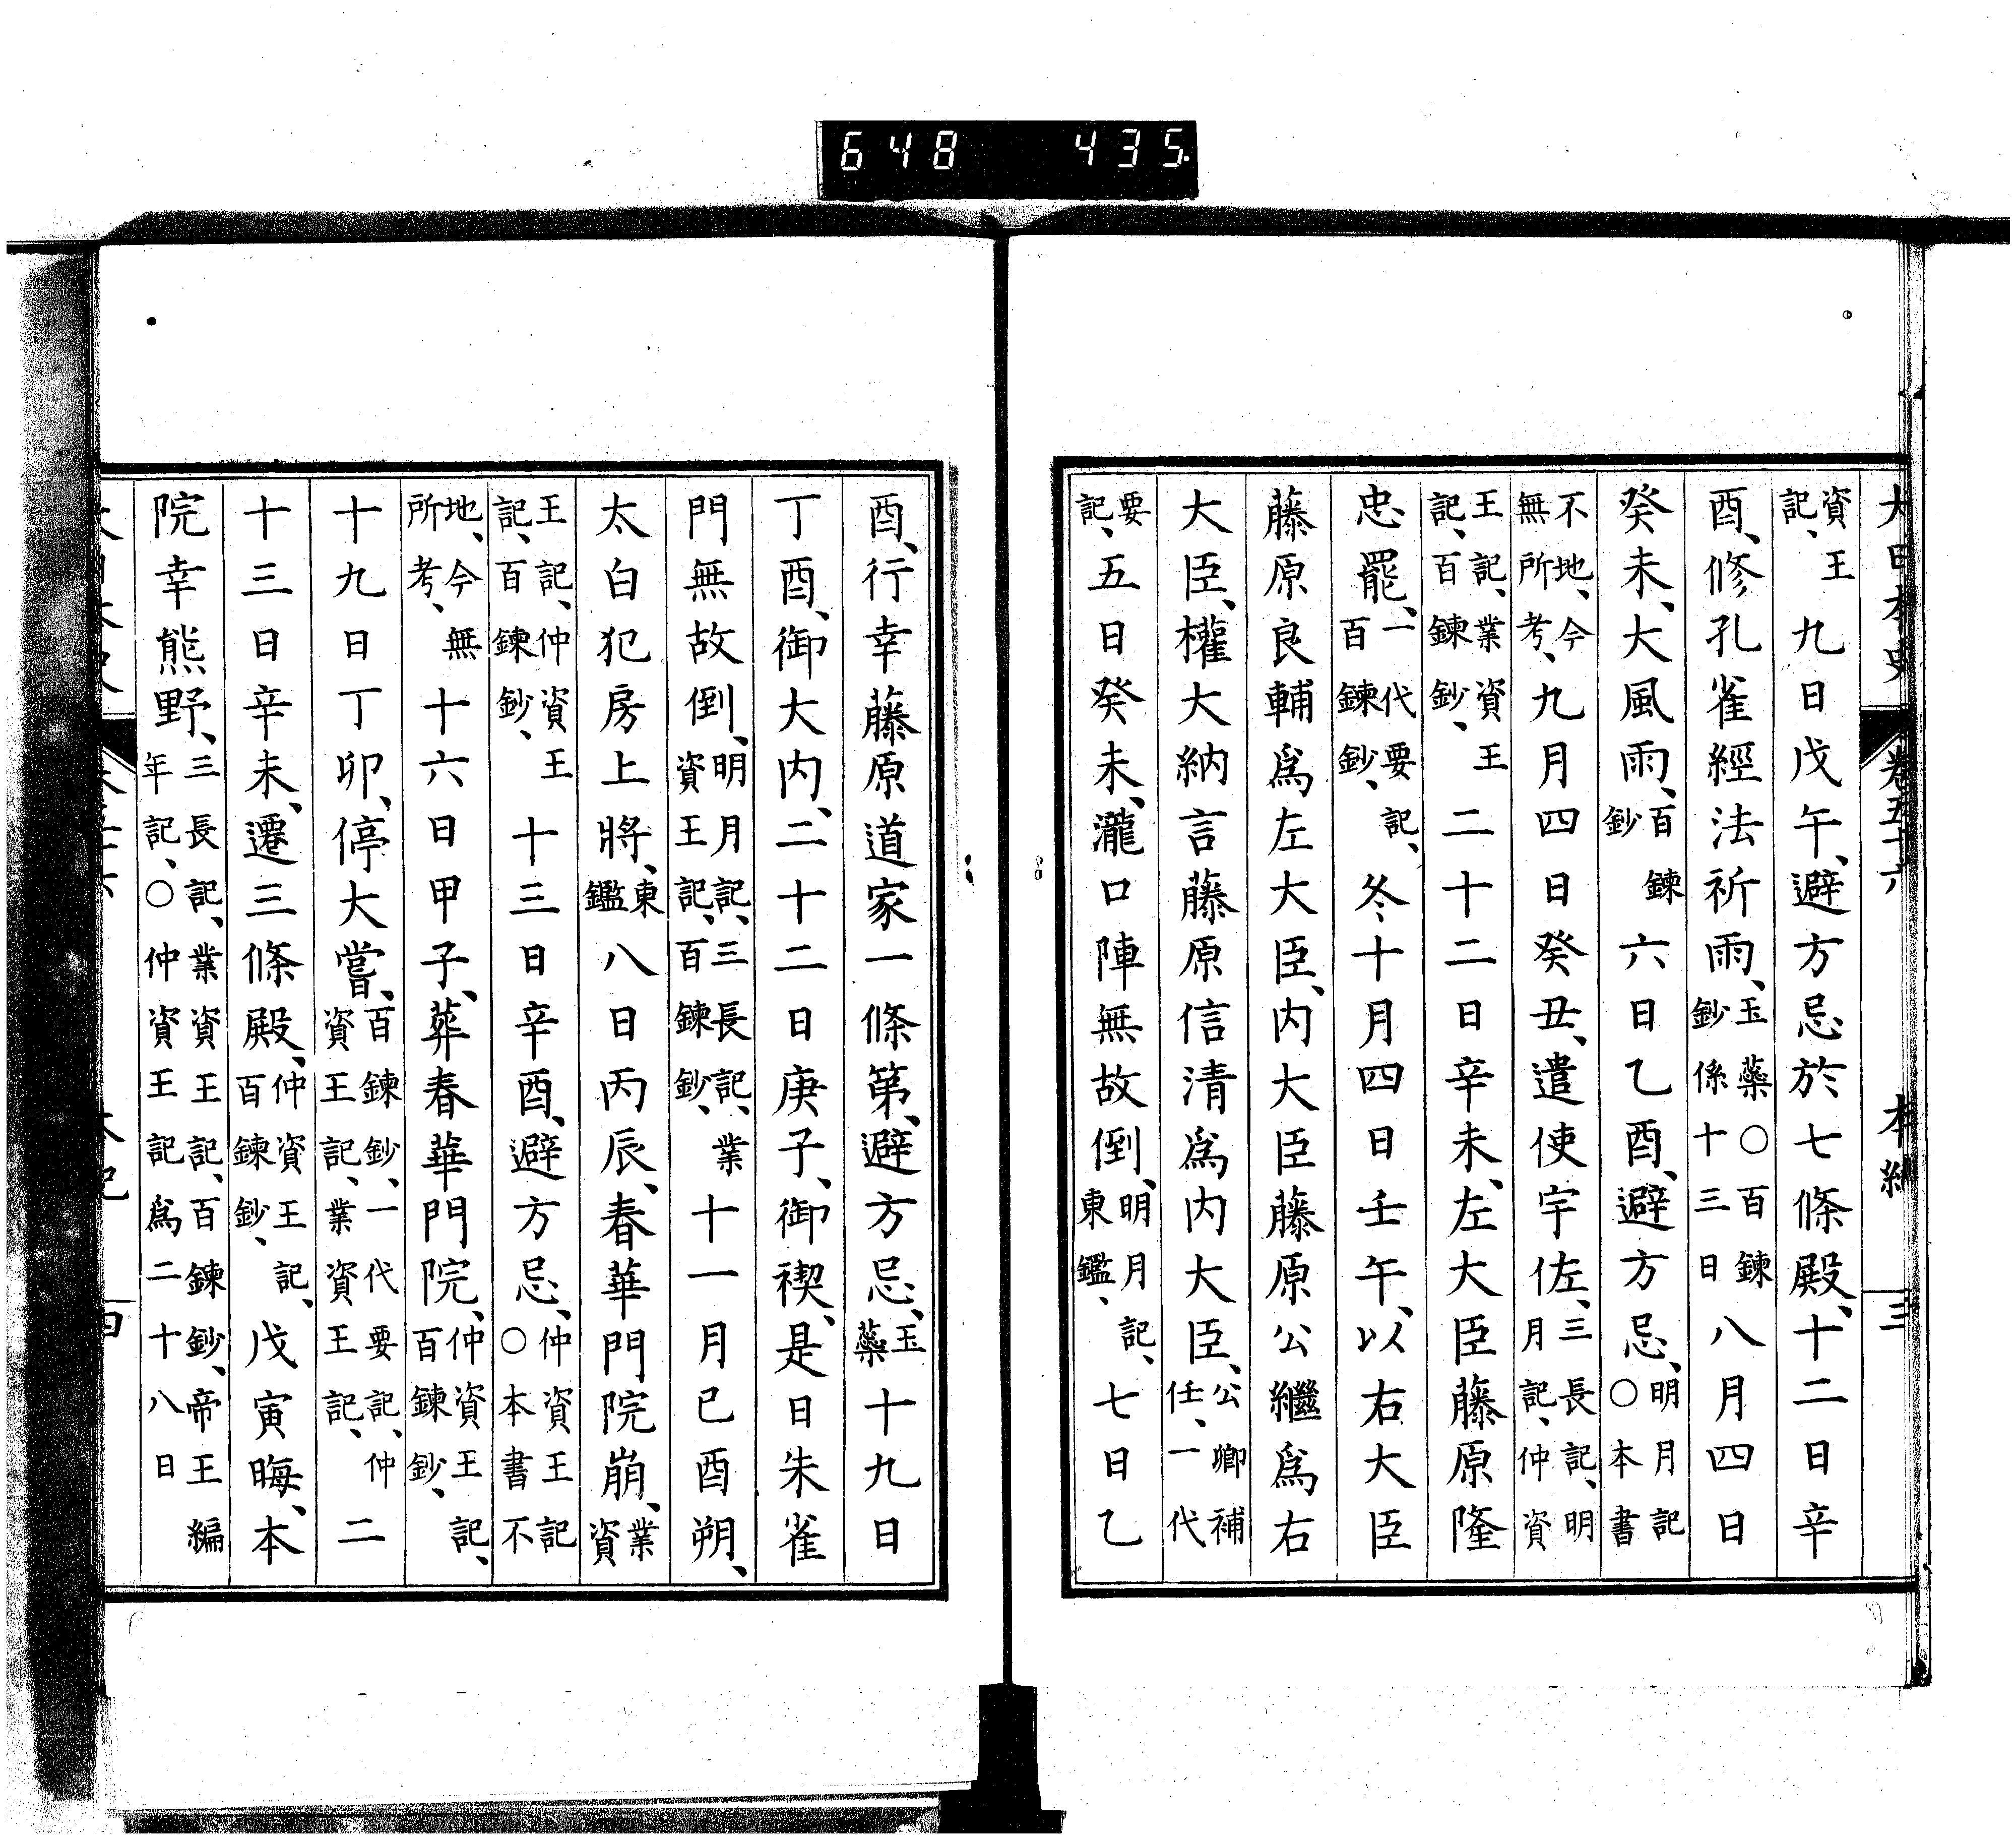 648 435
大日本史 卷五十六 本紀 三
資王記、九日戊午、避方忌於七條殿、十二日辛
酉、修孔雀經法祈雨、玉蘂○百鍊鈔係十三日八月四日
癸未、大風雨、百鍊鈔六日乙酉、避方忌、明月記○本書
不地、今無所考、九月四日癸丑、遣使宇佐、三長記、明月記、仲資
王記、業資王記、百鍊鈔、二十二日辛未、左大臣藤原隆
忠罷、一代要記、百鍊鈔、冬十月四日壬午、以右大臣
藤原良輔爲左大臣、内大臣藤原公繼爲右
大臣、權大納言藤原信清爲内大臣、公卿補任、一代
要記、五日癸未、瀧口陣無故倒、明月記、東鑑、七日乙
酉、行幸藤原道家一條第、避方忌、玉蘂十九日
丁酉、御大内、二十二日庚子、御禊、是日朱雀
門無故倒、明月記、三長記、業資王記、百鍊鈔、十一月己酉朔、
太白犯房上將、東鑑八日丙辰、春華門院崩、業資
王記、仲資王記、百鍊鈔、十三日辛酉、避方忌、仲資王記○本書不
地、今無所考、十六日甲子、葬春華門院、仲資王記、百鍊鈔、
十九日丁卯、停大嘗、百鍊鈔、一代要記、仲資王記、業資王記、二
十三日辛未、遷三條殿、仲資王記、百鍊鈔、戊寅晦、本
院幸熊野、三長記、業資王記、百鍊鈔、帝王編年記、○仲資王記爲二十八日